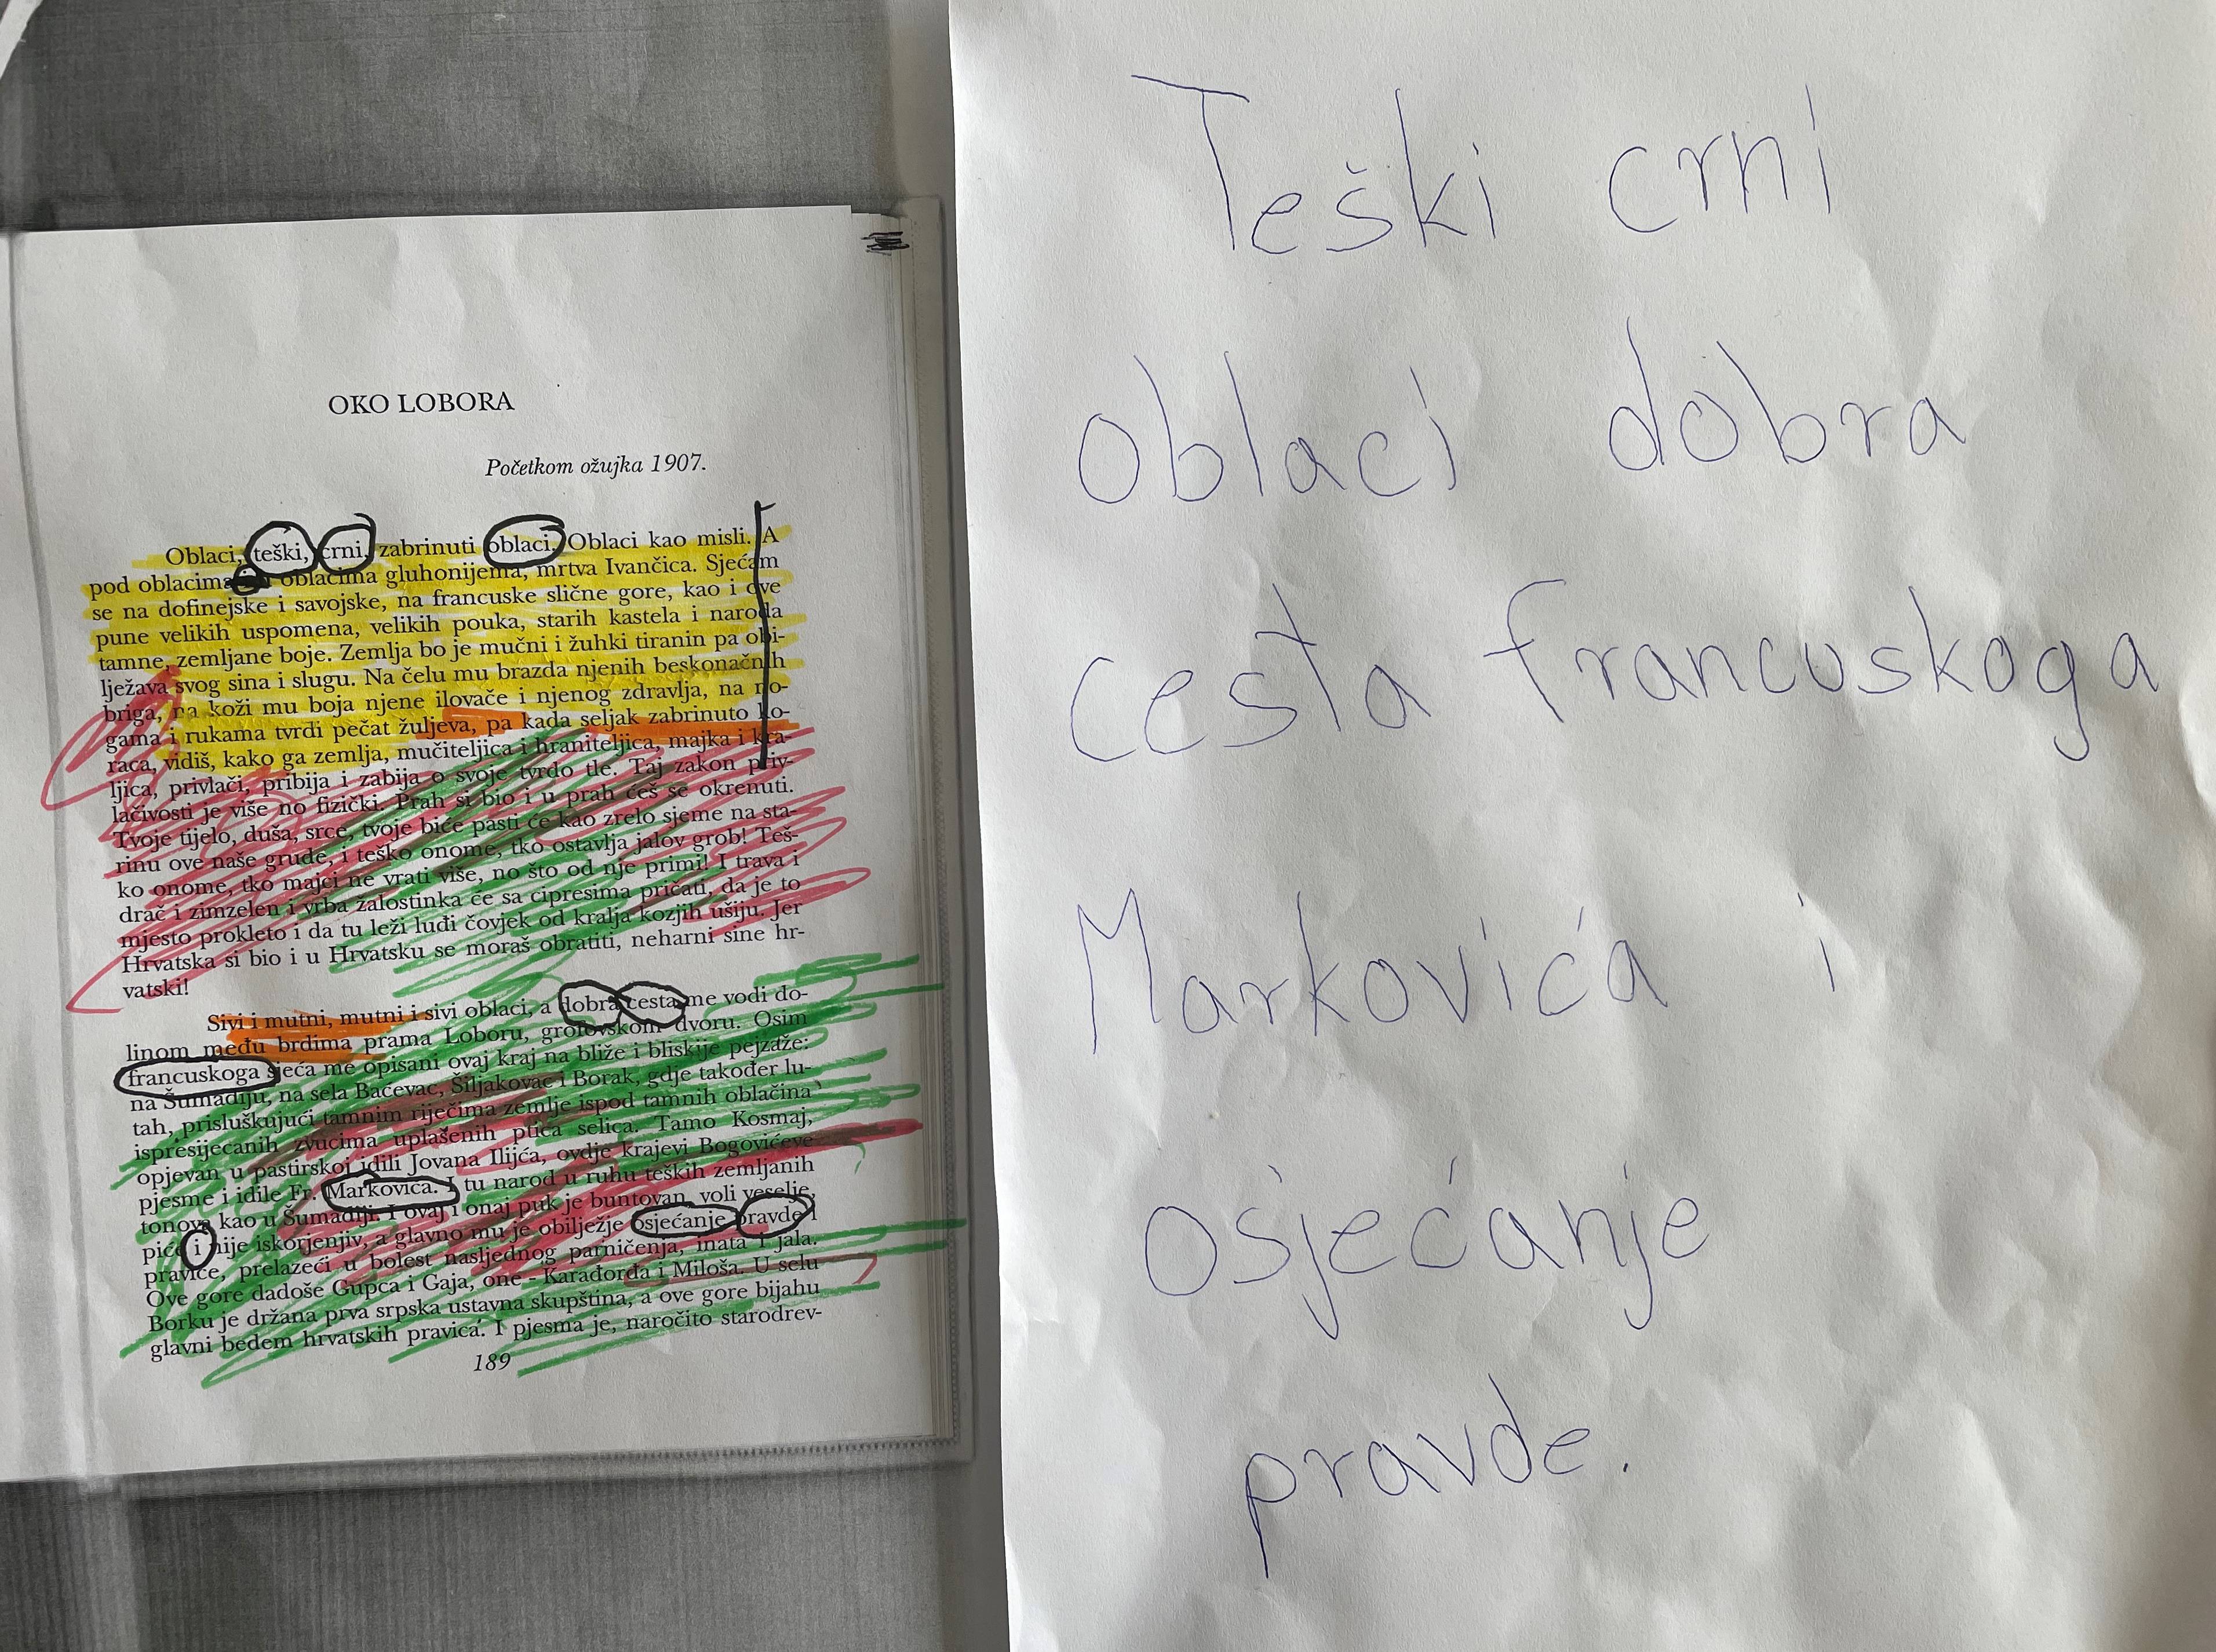 OKO LOBORA
Početkom ožujka 1907.
Oblaci, teški, crni, zabrinuti oblaci. Oblaci kao misli. A
pod oblacima oblacima gluhonijema, mrtva Ivančica. Sjećam
se na dofinejske i savojske, na francuske slične gore, kao i ove
pune velikih uspomena, velikih pouka, starih kastela i naroda
tamne, zemljane boje. Zemlja bo je mučni i žuhki tiranin pa obi-
lježava svog sina i slugu. Na čelu mu brazda njenih beskonačnih
briga, na koži mu boja njene ilovače i njenog zdravlja, na no-
gama i rukama tvrdi pečat žuljeva, pa kada seljak zabrinuto ko-
raca, vidiš, kako ga zemlja, mučiteljica i hraniteljica, majka i kra-
ljica, privlači, pribija i zabija o svoje tvrdo tle. Taj zakon priv-
lačivosti je više no fizički. Prah si bio i u prah ćeš se okrenuti.
Tvoje tijelo, duša, srce, tvoje biće pasti će kao zrelo sjeme na sta-
rinu ove naše grude, i teško onome, tko ostavlja jalov grob! Teš-
ko onome, tko majci ne vrati više, no što od nje primi! I trava i
drač i zimzelen i vrba žalostinka će sa cipresima pričati, da je to
mjesto prokleto i da tu leži luđi čovjek od kralja kozjih ušiju. Jer
Hrvatska si bio i u Hrvatsku se moraš obratiti, neharni sine hr-
vatski!
Sivi i mutni, mutni i sivi oblaci, a dobra cesta me vodi do-
linom među brdima prama Loboru, grofovskom dvoru. Osim
francuskoga sjeća me opisani ovaj kraj na bliže i bliskije pejzaže:
na Šumadiju, na sela Baćevac, Šiljakovac i Borak, gdje također lu-
tah, prisluškujući tamnim riječima zemlje ispod tamnih oblačina
ispresijecanih zvucima uplašenih ptica selica. Tamo Kosmaj,
opjevan u pastirskoj idili Jovana Ilijća, ovdje krajevi Bogovićeve
pjesme i idile Fr. Markovića. I tu narod u ruhu teških zemljanih
tonova kao u Šumadiji. I ovaj i onaj puk je buntovan, voli veselje,
piće i nije iskorjenjiv, a glavno mu je obilježje osjećanje pravde i
pravice, prelazeći u bolest nasljednog parničenja, inata i jala.
Ove gore dadoše Gupca i Gaja, one - Karađorđa i Miloša. U selu
Borku je držana prva srpska ustavna skupština, a ove gore bijahu
glavni bedem hrvatskih pravica. I pjesma je, naročito starodrev-
189
Teški crni
oblaci dobra
cesta francuskoga
Markovića i
osjećanje
pravde.